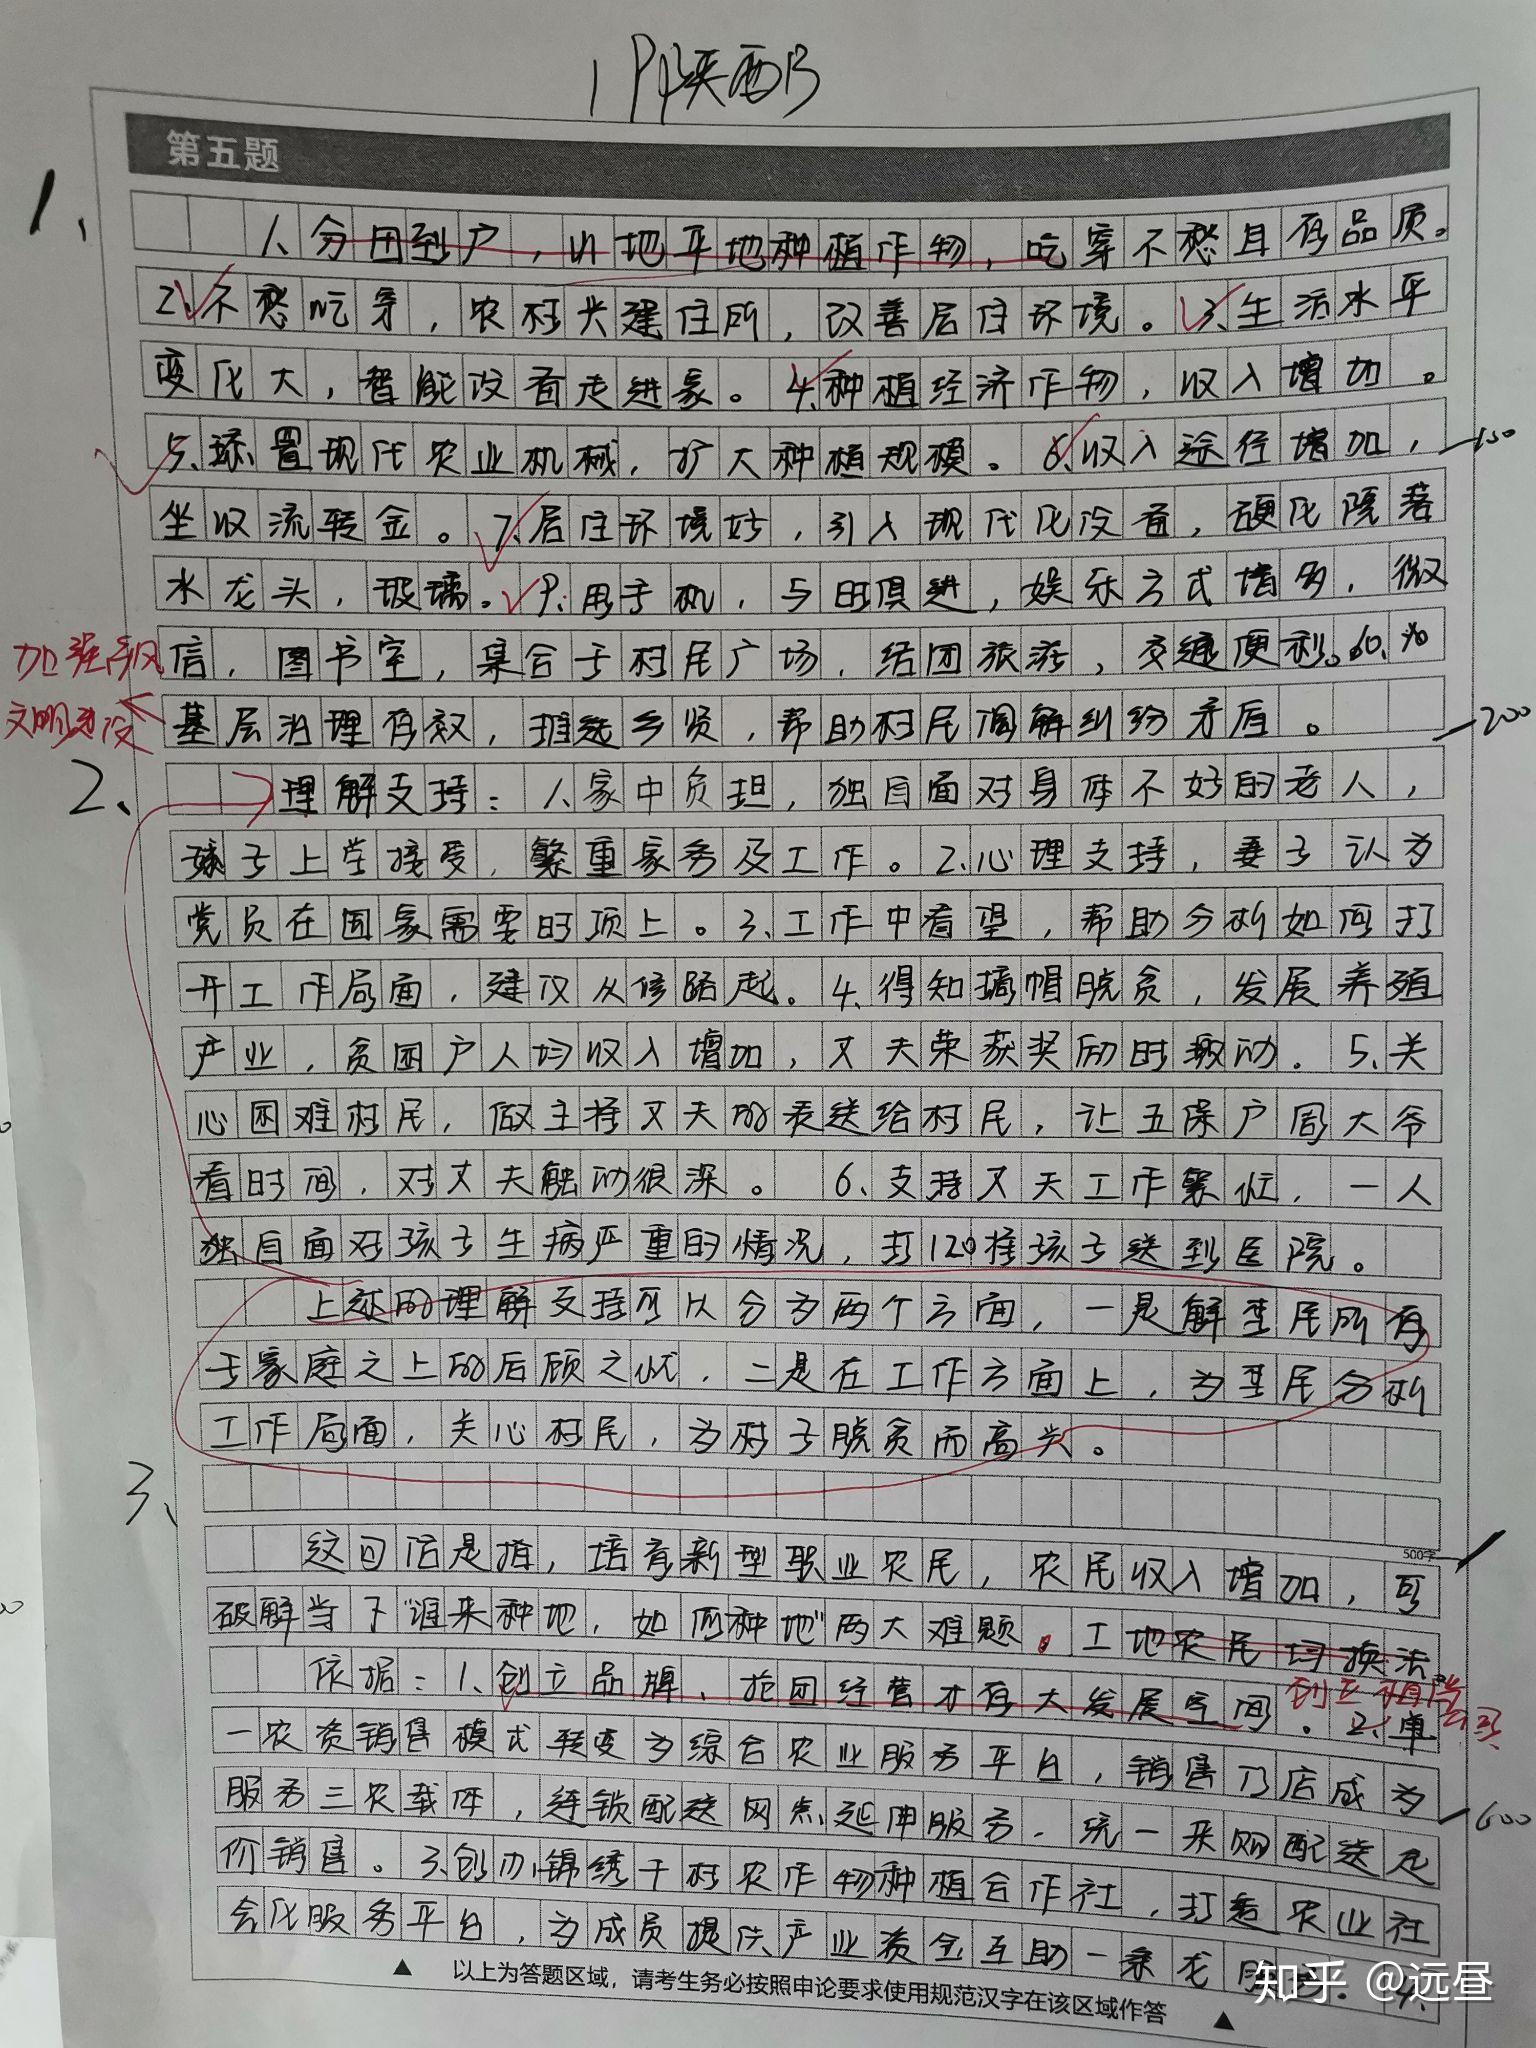 陕西B
第五题
1、
1、分田到户，山地平地种植作物，吃穿不愁且有品质。
2、不愁吃穿，农村共建住所，改善居住环境。3、生活水平
变化大，智能设备走进家。4、种植经济作物，收入增加。
5、添置现代农业机械，扩大种植规模。6、收入途径增加，
坐收流转金。7、居住环境好，引入现代化设备，硬化院落
水龙头，玻璃。9、用手机，与时俱进，娱乐方式增多，微
信，图书室，集合于村民广场，结团旅游，交通便利。10、
基层治理有效，推选乡贤，帮助村民调解纠纷矛盾。
200
2、
理解支持：1、家中负担，独自面对身体不好的老人，
孩子上学接受，繁重家务及工作。2、心理支持，妻子认为
党员在国家需要时顶上。3、工作中看望，帮助分析如何打
开工作局面，建议从修路起。4、得知摘帽脱贫，发展养殖
产业，贫困户人均收入增加，丈夫荣获奖励时激动。5、关
心困难村民，做主将丈夫的表送给村民，让五保户周大爷
看时间，对丈夫触动很深。6、支持丈夫工作繁忙，一人
独自面对孩子生病严重的情况，打120将孩子送到医院。
上述的理解支持可以分为两个方面，一是解基层所有
于家庭之上的后顾之忧，二是在工作方面上，为基层分析
工作局面，关心村民，为村子脱贫而高兴。
3、
500字
这句话是指，培育新型职业农民，农民收入增加，可
破解当下“谁来种地，如何种地”两大难题。工地农民均换活
依据：1、创立品牌、抱团经营才有大发展空间。2、单
一农资销售模式转变为综合农业服务平台，销售门店成为
服务三农载体，连锁配送网点延伸服务，统一采购配送定
600
价销售。3、创办锦绣千村农作物种植合作社，打造农业社
会化服务平台，为成员提供产业资金互助一条龙服务。4、
▲ 以上为答题区域，请考生务必按照申论要求使用规范汉字在该区域作答 ▲
知乎 @远昼